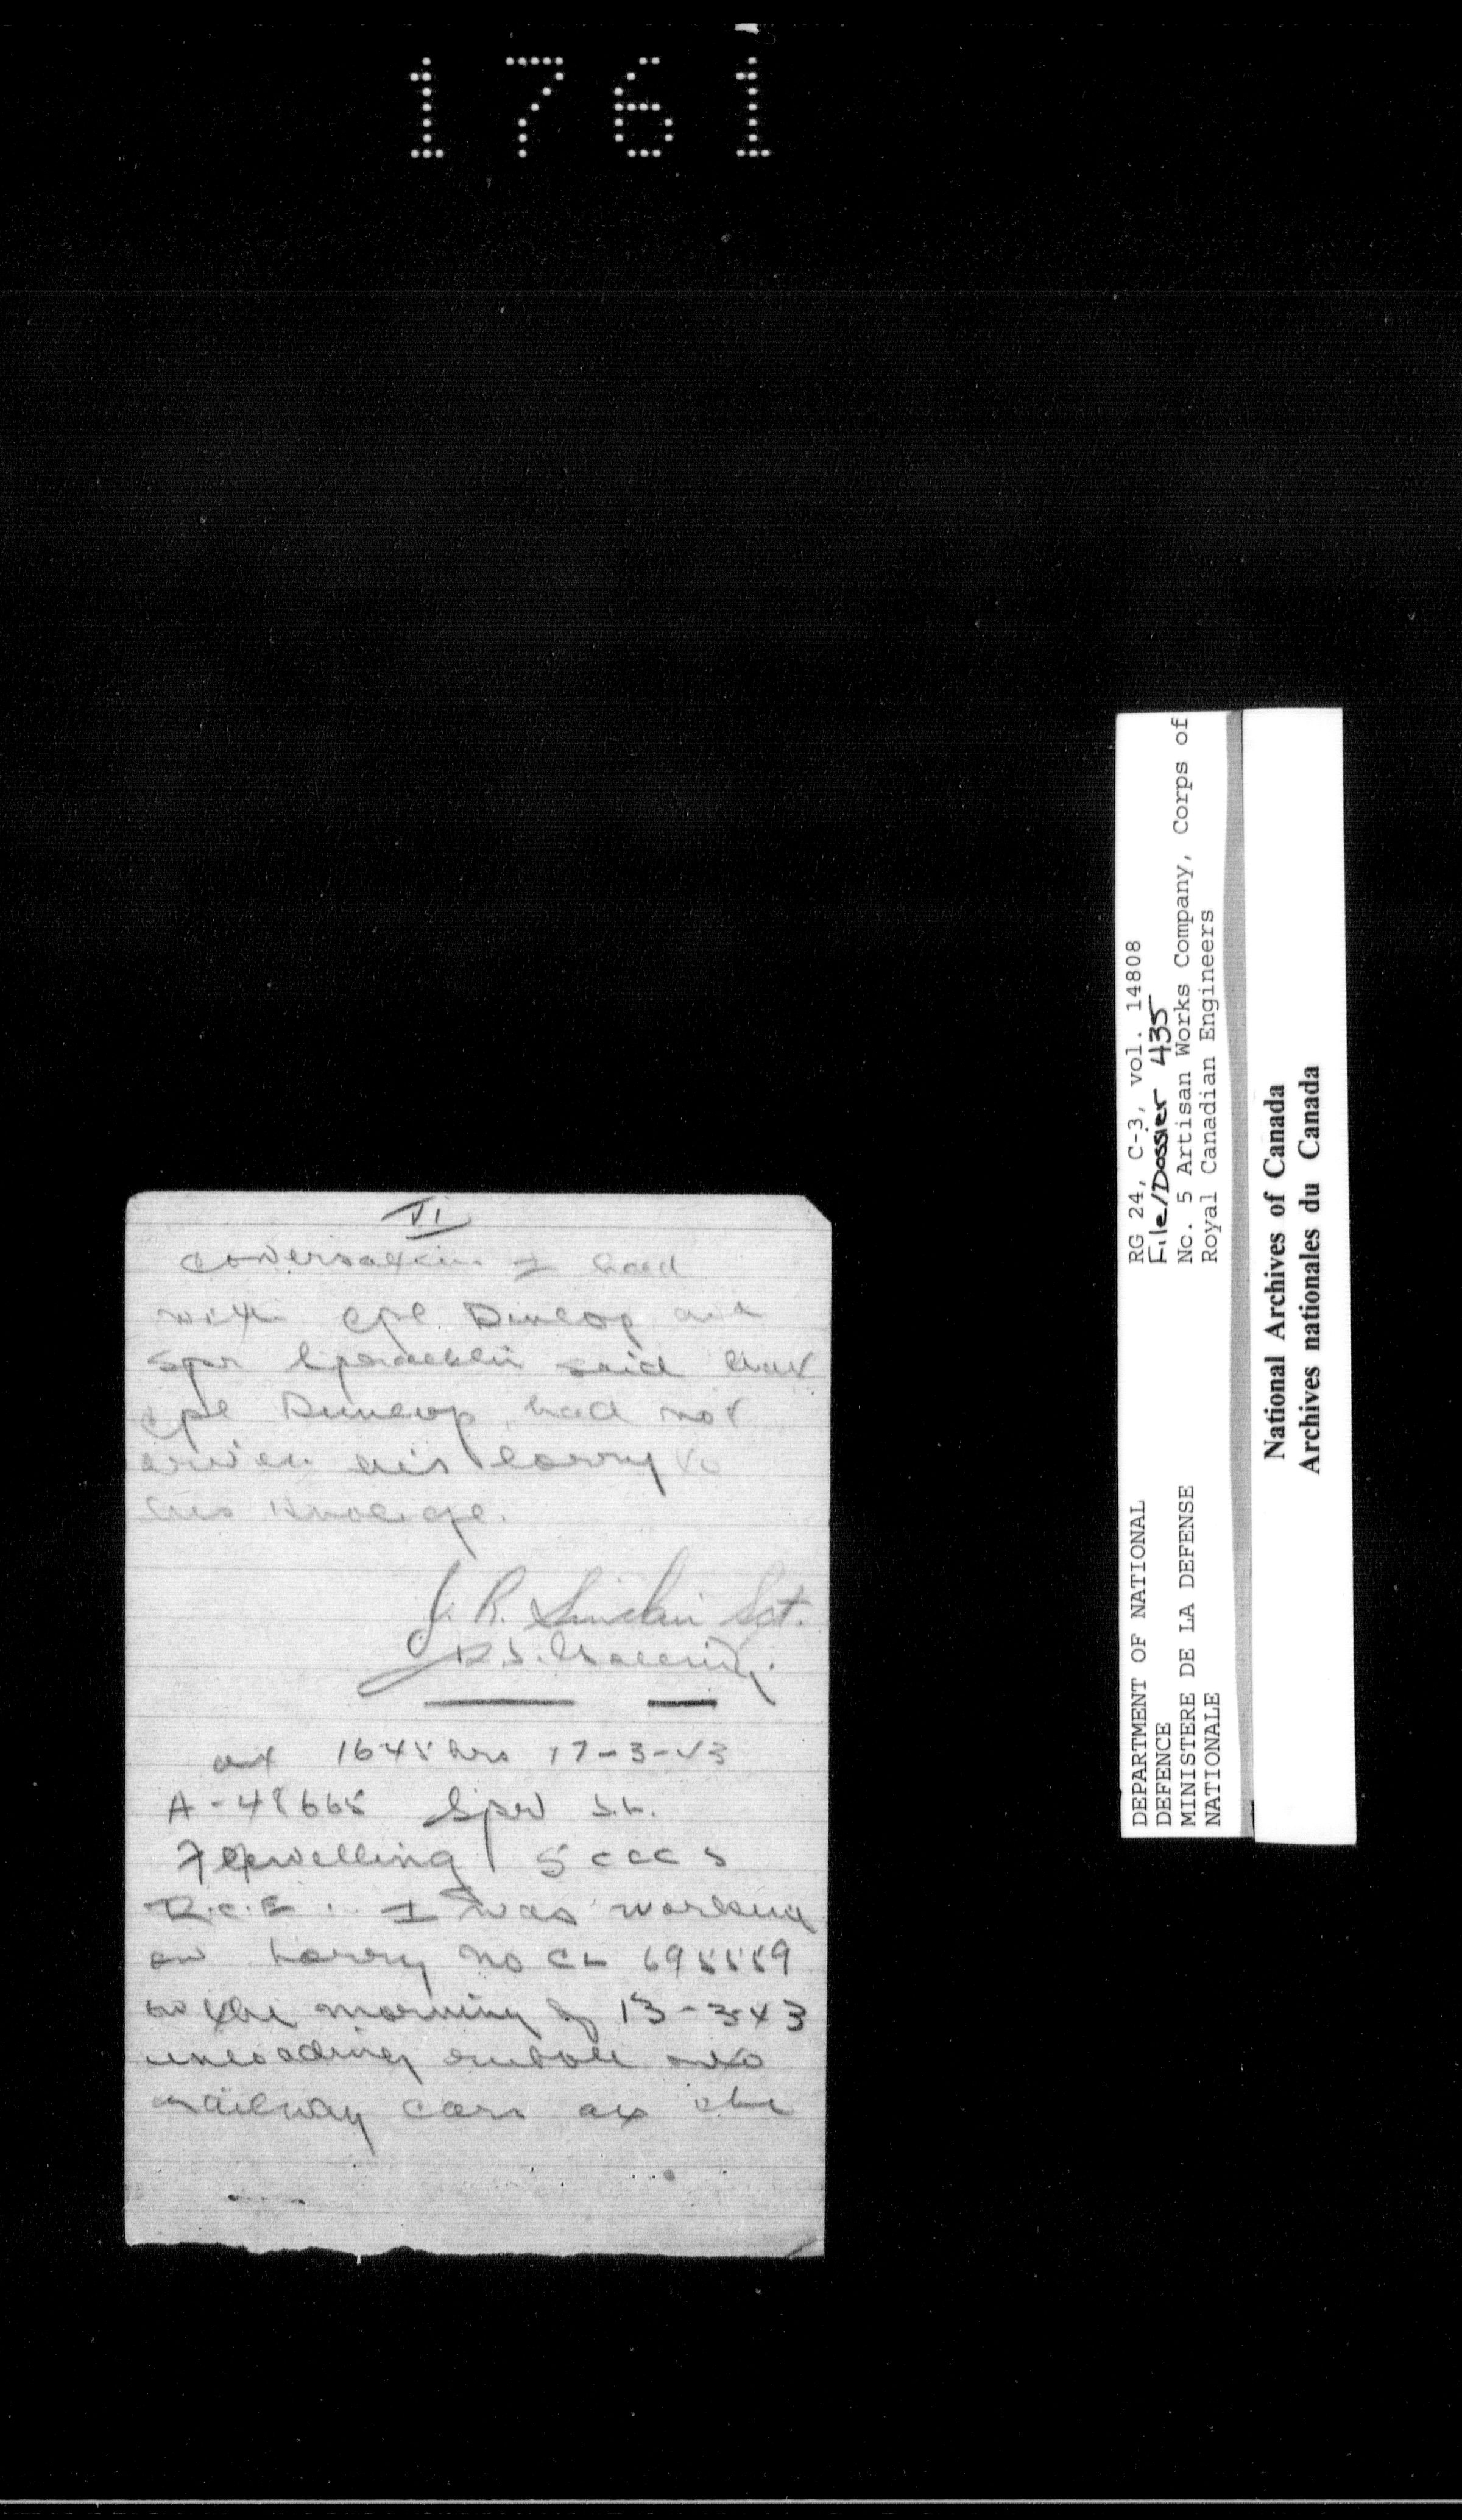 1761
VI
conversation I had
with Cpl Dunlop and
Spr said that
Cpl Dunlop had not
driven his lorry to
his knolege.
J. R. Sinclair Sgt.
at 1645 hrs 17-3-43
A-48665 Spr S.L.
Flewelling
R.C.E. I was working
on Lorry no CL 695559
on the morning of 13-3-43
unloading rubble into
railway cars at the
RG 24, C-3, vol. 14808
File/Dossier 435
No. 5 Artisan Works Company, Corps of
Royal Canadian Engineers
DEPARTMENT OF NATIONAL
DEFENCE
MINISTERE DE LA DEFENSE
NATIONALE
National Archives of Canada
Archives nationales du Canada